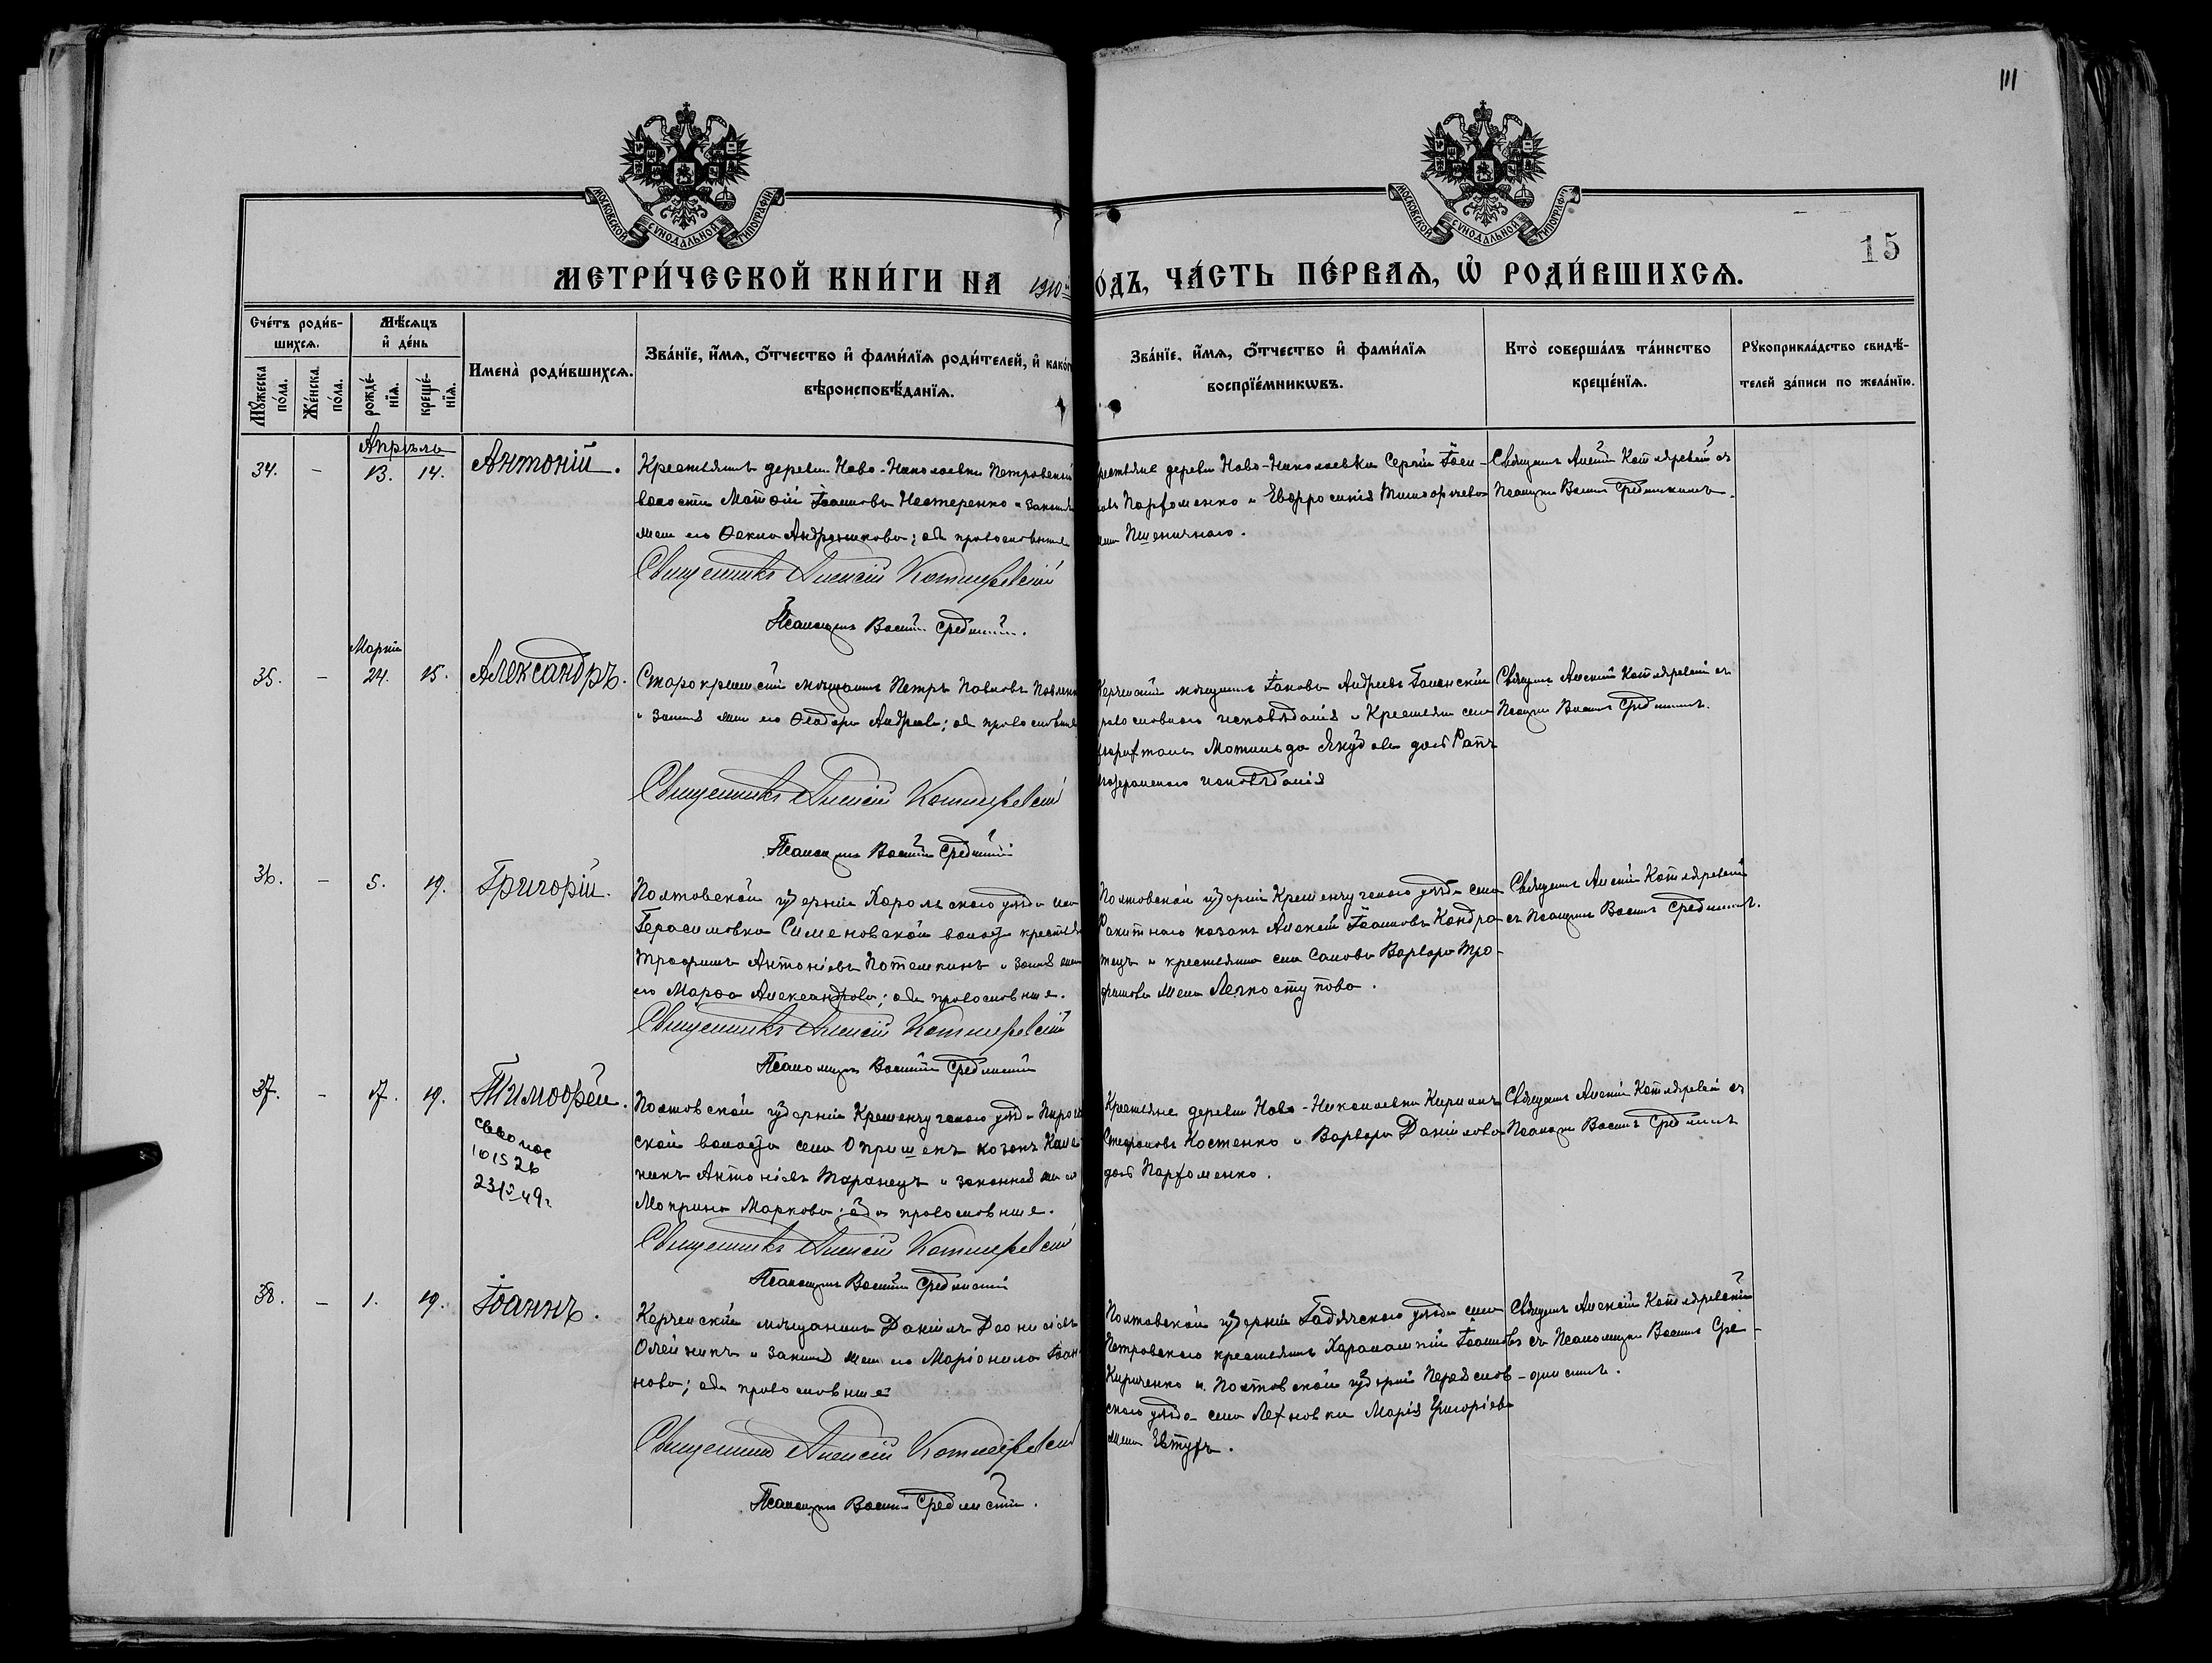 111
МОСКОВСКОЙ СУНОДАЛЬНОЙ ТИПОГРАФІИ
МОСКОВСКОЙ СУНОДАЛЬНОЙ ТИПОГРАФІИ
15
МЕТРИ́ЧЕСКОЙ КНИ́ГИ НА 1910й
О́ДЪ, ЧА́СТЬ ПЕ́РВАѦ, Ѽ РОДИ́ВШИХСѦ.
Сче́тъ роди́в-
шихсѧ.
Мѣ́сѧцъ
и҆ де́нь
Мꙋ́жеска по́ла.
Же́нска. по́ла.
рожде́-нїѧ.
креще́-нїѧ.
Имена̀ роди́вшихсѧ.
Зва́нїе, и҆́мѧ, ѻ҆́тчество и҆ фами́лїѧ роди́телей, и҆ како́г
вѣроисповѣ́данїѧ.
Зва́нїе, и҆́мѧ, ѻ҆́тчество и҆ фами́лїѧ
воспрїе́мникѡвъ.
Кто̀ соверша́лъ та́инство
креще́нїѧ.
Рꙋкоприкла́дство свидѣ́-
телей за́писи по жела́нїю.
Апрѣль
34. - 13. 14. Антоній.
Крестьянинъ деревни Ново-Николаевки Петровской
волости Матѳій Іоанновъ Нестеренко и законная
жена его Ѳекла Андроникова; оба православные
Священникъ Алексій Котляревскій
Псаломщикъ Василій Срединскій.
Крестьяне деревни Ново-Николаевки Сергій Іоси-
овъ Парфоменко и Евфросинія Тимофѣева
жена Пшеничнаго.
Священ. Алексій Котляревскій съ
Псаломщ. Васил. Срединскимъ.
Марта
35. - 24. 15. Александръ.
Старокрымскій мѣщанинъ Петръ Павловъ Павленко
и законная жена его Ѳеодора Андреева; оба православные
Священникъ Алексій Котляревскій
Псаломщикъ Василій Срединскій
Керченскій мѣщанинъ Іаковъ Андреевъ
православнаго исповѣданія и Крестьянка села
Матильда Якубова дочь Рапъ
лютеранскаго исповѣданія
Священ. Алексій Котляревскій съ
Псаломщ. Васил. Срединскимъ.
36. - 5. 19. Григорій.
Полтавской губерніи Хорольскаго уѣзда села
Герасимовки Семеновской волости крестьянинъ
Трофимъ Антоніевъ Потемкинъ и законная жена
его Марѳа Александрова; оба православные.
Священникъ Алексій Котляревскій
Псаломщикъ Василій Срединскій
Полтавской губерніи Кременчугскаго уѣзда села
Ракитнаго казакъ Алексій Іоанновъ Кондра-
тецъ и крестьянка села Санова Варвара Тро-
фимова жена Легкоступова.
Священ. Алексій Котляревскій
съ Псаломщ. Васил. Срединскимъ.
37. - 17. 19. Тимоѳей.
101526
Полтавской губерніи Кременчугскаго уѣзда
ской волости села Опришекъ казакъ Кале-
никъ Антоніевъ Таранецъ и законная жена его
Макрина Маркова; оба православные.
Священникъ Алексій Котляревскій
Псаломщикъ Василій Срединскій
Крестьяне деревни Ново-Николаевки Кириллъ
Стефановъ Костенко и Варвара Даніилова
дочь Парфоменко.
Священ. Алексій Котляревскій съ
Псаломщ. Васил. Срединскимъ
38. - 1. 19. Іоаннъ.
Керченскій мѣщанинъ Даніилъ Діонисіевъ
Олейникъ и законная жена его Маріонила Іоан-
нова; оба православные
Священникъ Алексій Котляревскій
Псаломщикъ Василій Срединскій.
Полтавской губерніи Гадячскаго уѣзда села
Петровскаго крестьянинъ Харалампій Іоанновъ
Кириченко и Полтавской губерніи Переяслов-
скаго уѣзда села Лехновки Марія Григоріева
жена Евтухъ.
Священ. Алексій Котляревскій
съ Псаломщик. Васил. Сре-
динскимъ.